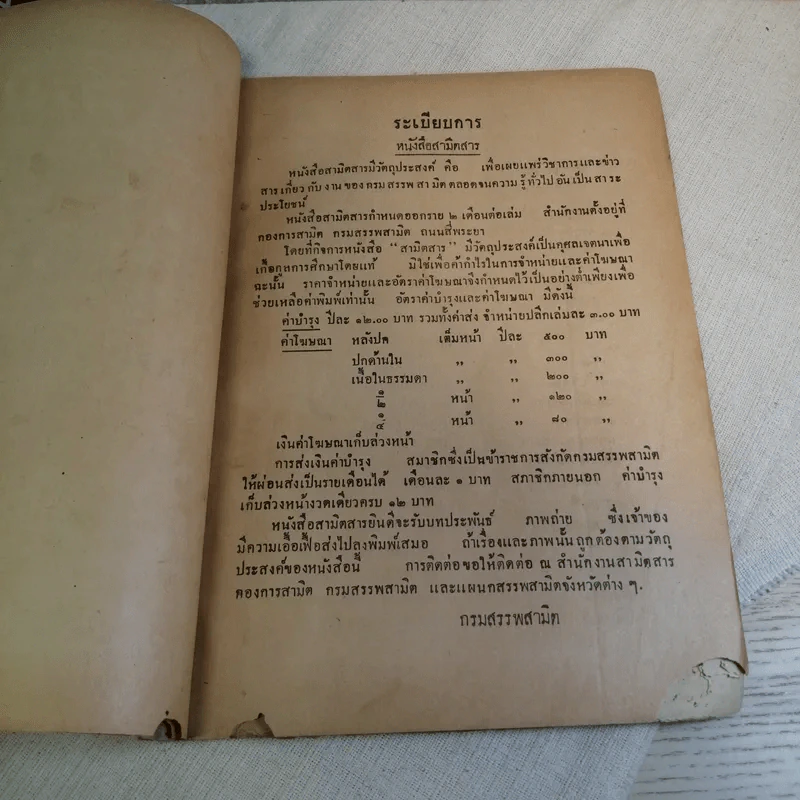 ระเบียบการ
หนังสือสามิตสาร
หนังสือสามิตสารมีวัตถุประสงค์ คือ เพื่อเผยแพร่วิชาการและข่าว
สารเกี่ยวกับงานของกรมสรรพสามิตตลอดจนความรู้ทั่วไปอันเป็นสาระ
ประโยชน์
หนังสือสามิตสารกำหนดออกราย ๒ เดือนต่อเล่ม สำนักงานตั้งอยู่ที่
กองการสามิต กรมสรรพสามิต ถนนสี่พระยา
โดยที่กิจการหนังสือ “สามิตสาร” มีวัตถุประสงค์เป็นกุศลเจตนาเพื่อ
เกื้อกูลการศึกษาโดยแท้ มิใช่เพื่อค้ากำไรในการจำหน่ายและค่าโฆษณา
ฉะนั้น ราคาจำหน่ายและอัตราค่าโฆษณาจึงกำหนดไว้เป็นอย่างต่ำเพียงเพื่อ
ช่วยเหลือค่าพิมพ์เท่านั้น อัตราค่าบำรุงและค่าโฆษณา มีดังนี้
ค่าบำรุง ปีละ ๑๒.๐๐ บาท รวมทั้งค่าส่ง จำหน่ายปลีกเล่มละ ๓.๐๐ บาท
ค่าโฆษณา หลังปก เต็มหน้า ปีละ ๕๐๐ บาท
ปกด้านใน ,, ,, ๓๐๐ ,,
เนื้อในธรรมดา ,, ,, ๒๐๐ ,,
๑/๒ หน้า ,, ๑๒๐ ,,
๑/๔ หน้า ,, ๘๐ ,,
เงินค่าโฆษณาเก็บล่วงหน้า
การส่งเงินค่าบำรุง สมาชิกซึ่งเป็นข้าราชการสังกัดกรมสรรพสามิต
ให้ผ่อนส่งเป็นรายเดือนได้ เดือนละ ๑ บาท สมาชิกภายนอก ค่าบำรุง
เก็บล่วงหน้างวดเดียวครบ ๑๒ บาท
หนังสือสามิตสารยินดีจะรับบทประพันธ์ ภาพถ่าย ซึ่งเจ้าของ
มีความเอื้อเฟื้อส่งไปลงพิมพ์เสมอ ถ้าเรื่องและภาพนั้นถูกต้องตามวัตถุ
ประสงค์ของหนังสือนี้ การติดต่อขอให้ติดต่อ ณ สำนักงานสามิตสาร
กองการสามิต กรมสรรพสามิต และแผนกสรรพสามิตจังหวัดต่าง ๆ.
กรมสรรพสามิต